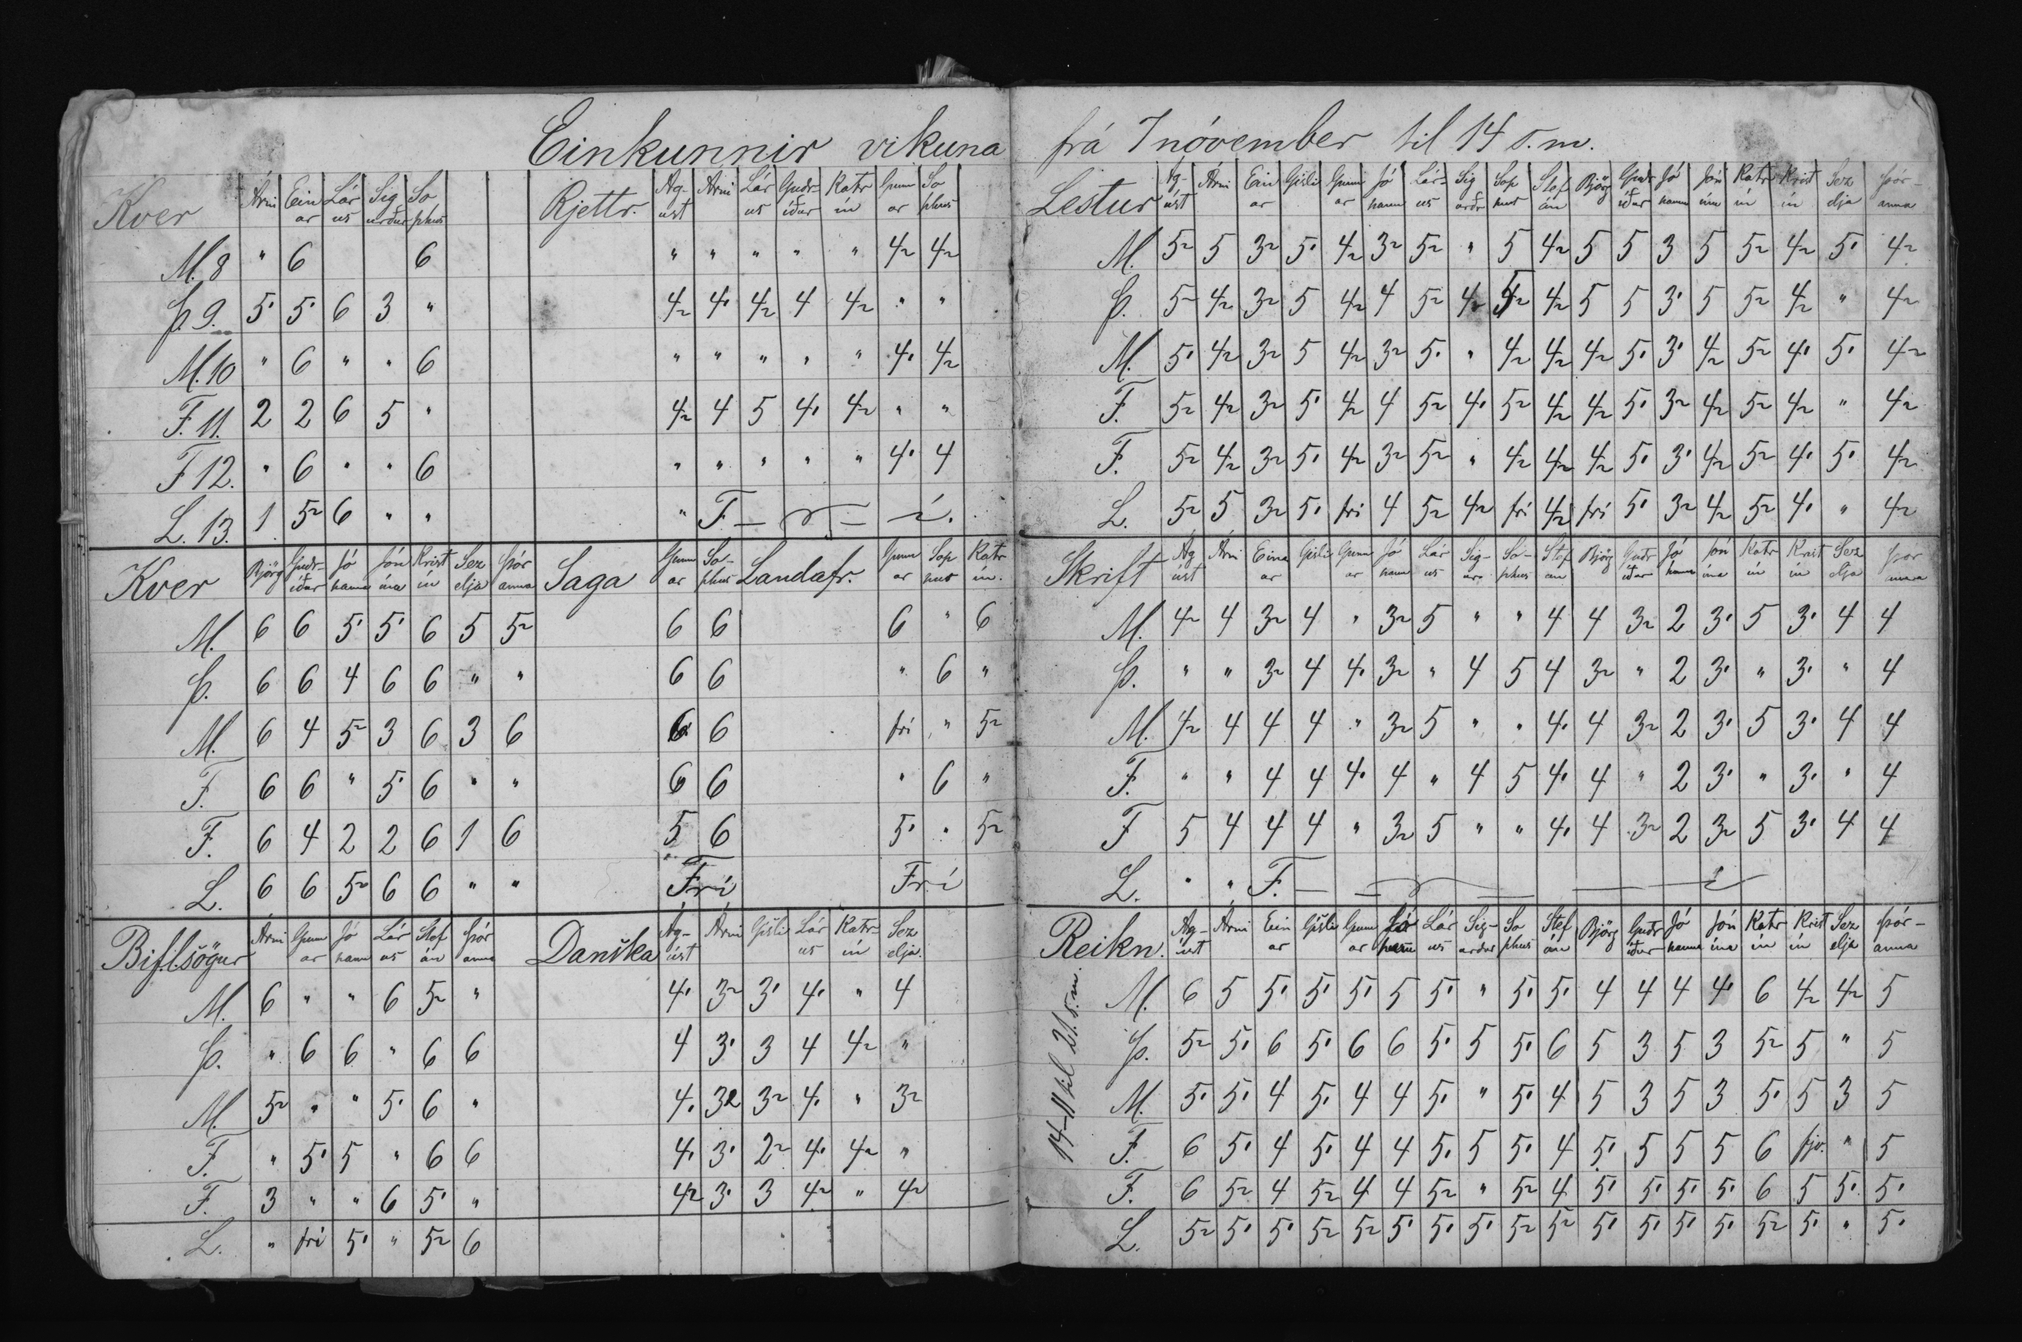 Einkunnir vikuna
Kver Árni Einar Lárus Sigurður Sophus Rjettr. Ágúst Árni Lárus Guðríður Katrín Gunnar Sophus
M. 8 " 6 6 " " " " " 4½ 4½
Þ. 9. 5' 5' 6 3 " 4½ 4' 4½ 4 4½ " "
M. 10 " 6 " " 6 " " " " " 4' 4½
F. 11. 2 2 6 5 " 4½ 4 5 4' 4½ " "
F 12. " 6 " " 6 " " " " " 4' 4
L. 13. 1 5½ 6 " " " F – r – í.
Kver Björg Guðríður Jóhanna Jónína Kristín Sezelja Þóranna Saga Gunnar Sophus Landafr. Gunnar Sophus Katrín.
M. 6 6 5' 5' 6 5 5½ 6 6 6 " 6
Þ. 6 6 4 6 6 " " 6 6 " 6 "
M. 6 4 5½ 3 6 3 6 6 6 frí " 5½
F. 6 6 " 5' 6 " " 6 6 " 6 "
F. 6 4 2 2 6 1 6 5 6 5' " 5½
L. 6 6 5½ 6 6 " " Frí Frí
Biflsögur Árni Gunnar Jóhann Lárus Stefán Þóranna Danska Ágúst Árni Gísli Lárus Katrín Sezelja.
M. 6 " " 6 5½ " 4' 3½ 3' 4' " 4
Þ. " 6 6 " 6 6 4 3' 3 4 4½ "
M. 5½ " " 5' 6 " 4' 3½ 3½ 4' " 3½
F. " 5' 5 " 6 6 4' 3' 2½ 4' 4½ "
F. 3 " " 6 5' " 4½ 3' 3 4½ " 4½
L. " frí 5' " 5½ 6
frá 7 nóvember til 14 s.m.
Lestur Ágúst Árni Einar Gísli Gunnar Jóhann Lárus Sigurðr Sophus Stefán Björg Guðríður Jóhanna Jónína Katrín Kristín Sezelja Þóranna
M. 5½ 5 3½ 5' 4½ 3½ 5½ " 5 4½ 5 5 3 5 5½ 4½ 5' 4½
Þ. 5½ 4½ 3½ 5 4½ 4 5½ 4½ 4½ 5 5 3' 5 5½ 4½ " 4½
M. 5' 4½ 3½ 5 4½ 3½ 5' " 4½ 4½ 4½ 5' 3' 4½ 5½ 4' 5' 4½
F. 5½ 4½ 3½ 5' 4½ 4 5½ 4' 5½ 4½ 4½ 5' 3½ 4½ 5½ 4½ " 4½
F. 5½ 4½ 3½ 5' 4½ 3½ 5½ " 4½ 4½ 4½ 5' 3' 4½ 5½ 4' 5' 4½
L. 5½ 5 3½ 5' frí 4 5½ 4½ frí 4½ frí 5' 3½ 4½ 5½ 4' " 4½
Skrift Ágúst Árni Einar Gísli Gunnar Jóhann Lárus Sigurðr Sophus Stefán Björg Guðríður Jóhanna Jónína Katrín Kristín Sezelja Þóranna
M. 4½ 4 3½ 4 " 3½ 5 " " 4 4 3½ 2 3' 5 3' 4 4
Þ. " " 3½ 4 4' 3½ " 4 5 4 3½ " 2 3' " 3' " 4
M. 4½ 4 4 4 " 3½ 5 " " 4' 4 3½ 2 3' 5 3' 4 4
F. " " 4 4 4' 4 " 4 5 4' 4 " 2 3' " 3' " 4
F 5 4 4 4 " 3½ 5 " " 4' 4 3½ 2 3½ 5 3' 4 4
L. " " F. – r – í
Reikn. Ágúst Árni Einar Gísli Gunnar Jóhann Lárus Sigurður Sophus Stefán Björg Guðríður Jóhanna Jónína Katrín Kristín Sezelja Þóranna
M. 6 5 5' 5' 5' 5 5' " 5' 5' 4 4 4 4' 6 4½ 4½ 5
Þ. 5½ 5' 6 5' 6 6 5' 5 5' 6 5 3 5 3 5½ 5 " 5
M. 5' 5' 4 5' 4 4 5' " 5' 4 5 3 5 3 5' 5 3 5
F. 6 5' 4 5' 4 4 5' 5 5' 4 5' 5 5 5 6 fjv. " 5
F. 6 5½ 4 5½ 4 4 5½ " 5½ 4 5' 5' 5' 5' 6 5 5' 5'
L. 5½ 5' 5' 5½ 5½ 5' 5' 5' 5½ 5½ 5' 5' 5' 5' 5½ 5' " 5'
14–11 til 21. s.m.